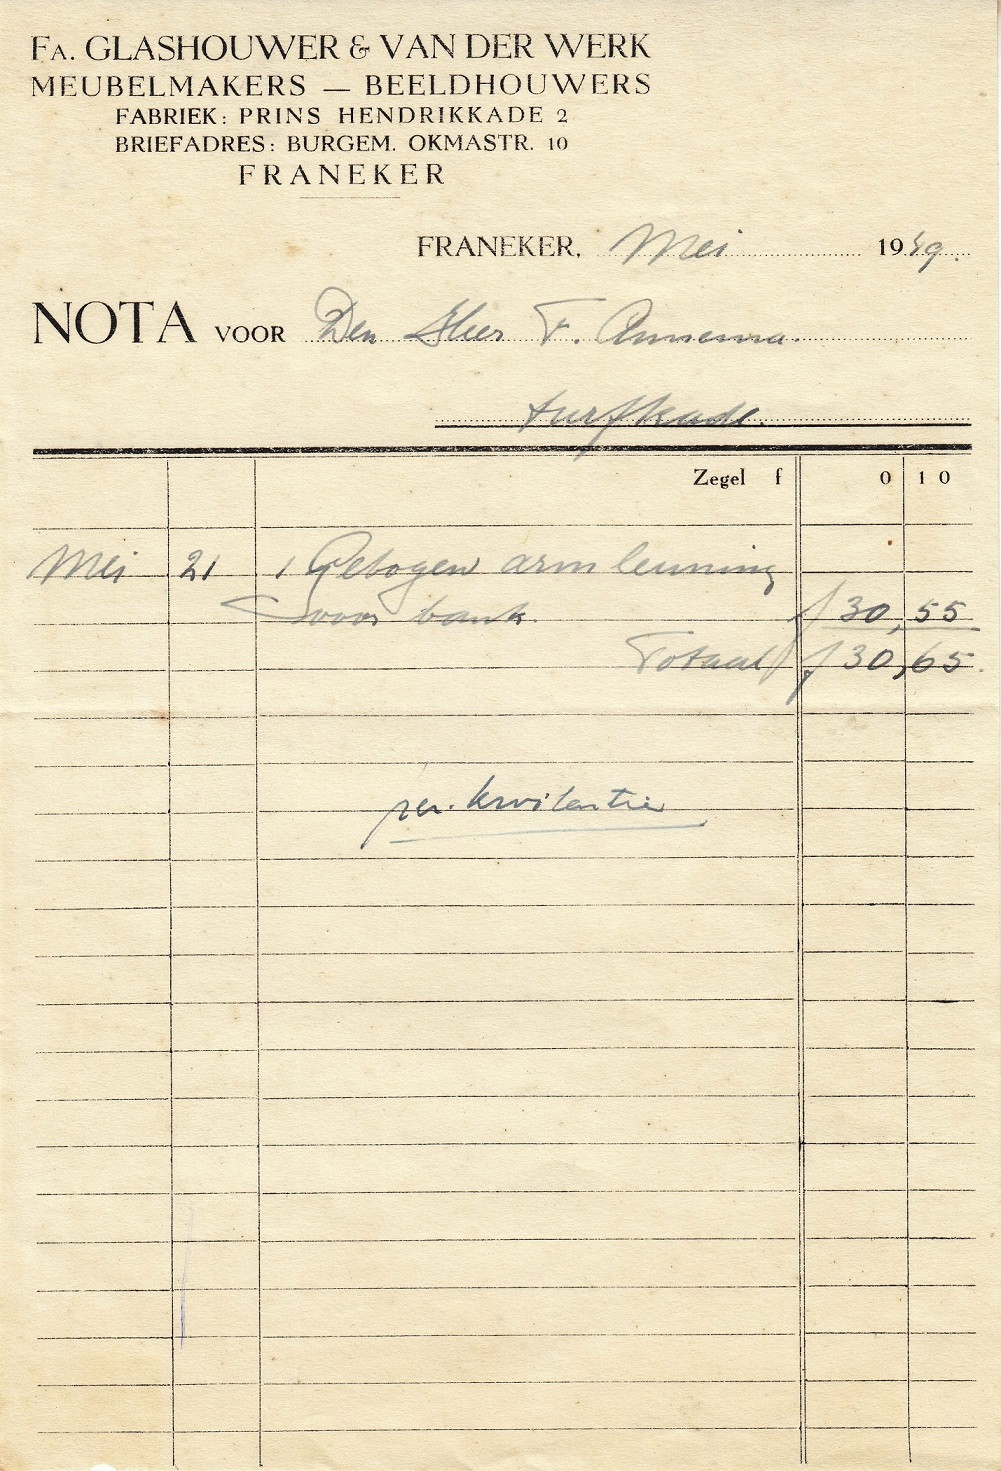 FA. GLASHOUWER & VAN DER WERK
MEUBELMAKERS — BEELDHOUWERS
FABRIEK: PRINS HENDRIKKADE 2
BRIEFADRES: BURGEM. OKMASTR. 10
FRANEKER
FRANEKER, Mei 1949.
NOTA VOOR Den Heer F. Annema.
turfkade.
Zegel f 0 10
Mei 21 1 Gebogen armleuning
voor bank. f 30,55
Totaal f 30,65.
per. kwitentie